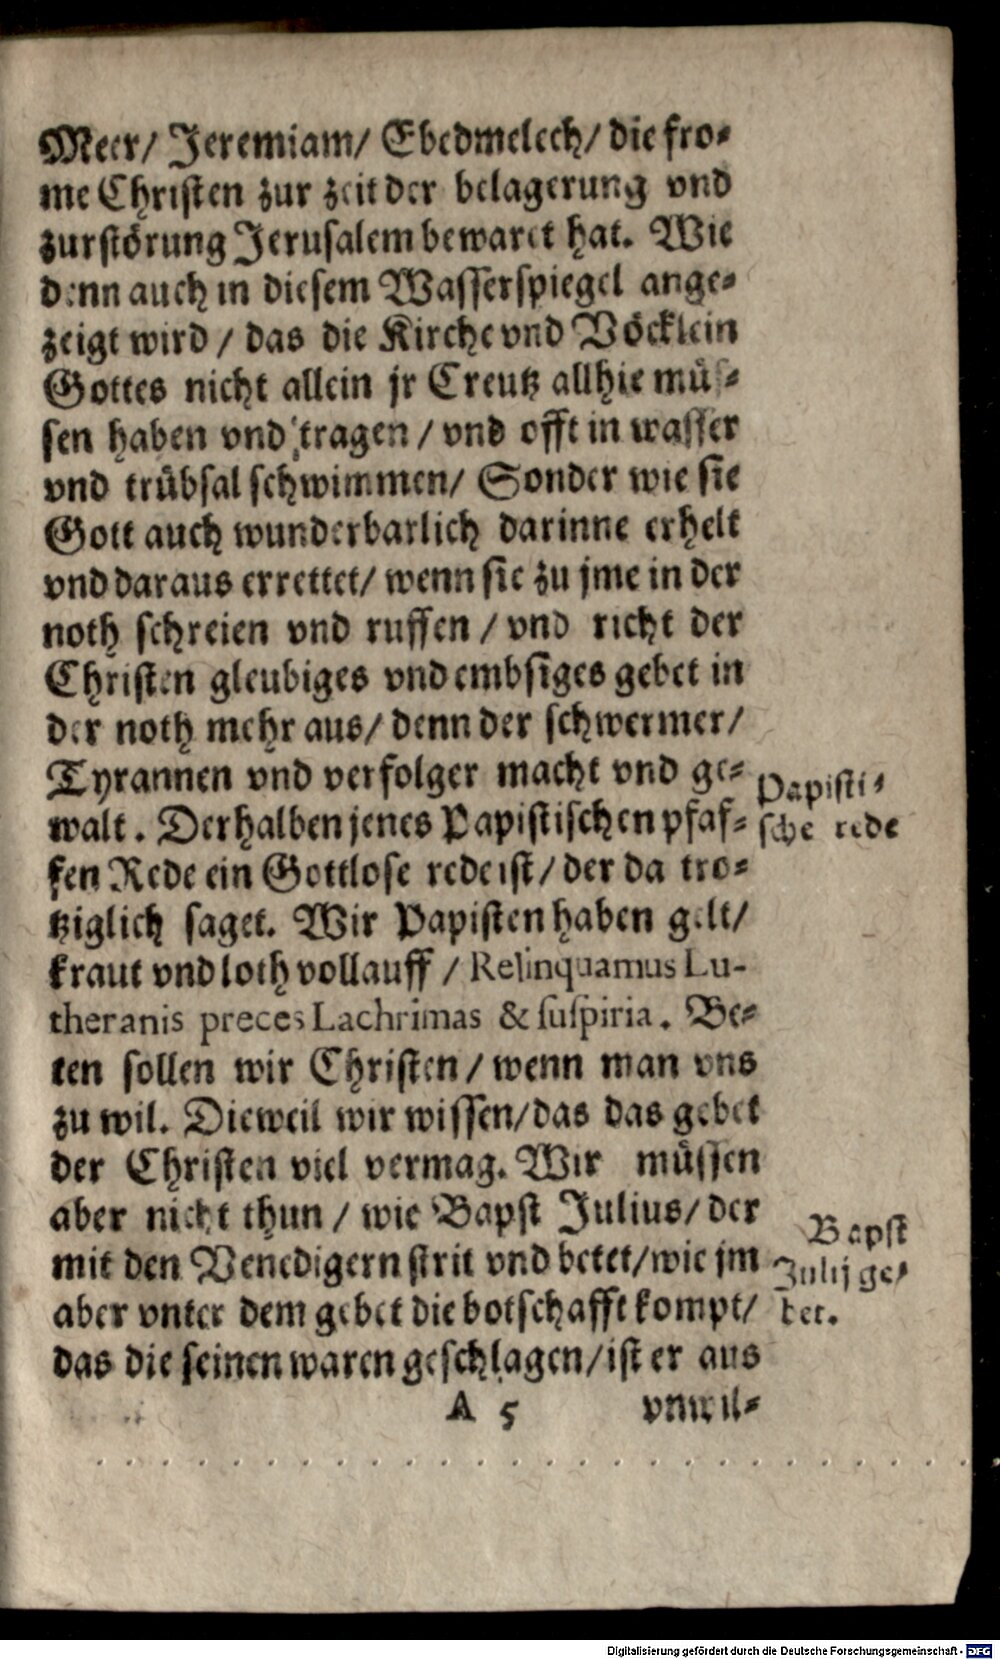 Meer/ Jeremiam/ Ebedmelech/ die fro-
me Christen zur zeit der belagerung vnd
zurstörung Jerusalem bewaret hat. Wie
denn auch in diesem Wasserspiegel ange-
zeigt wird / das die Kirche vnd Völcklein
Gottes nicht allein jr Creutz allhie müs-
sen haben vnd tragen / vnd offt in wasser
vnd trübsal schwimmen/ Sonder wie sie
Gott auch wunderbarlich darinne erhelt
vnd daraus errettet/ wenn sie zu jme in der
noth schreien vnd ruffen / vnd richt der
Christen gleubiges vnd embsiges gebet in
der noth mehr aus/ denn der schwermer/
Tyrannen vnd verfolger macht vnd ge-
walt. Derhalben jenes Papistischen pfaf-
fen Rede ein Gottlose rede ist/ der da tro-
tziglich saget. Wir Papisten haben gelt/
kraut vnd loth vollauff / Relinquamus Lu-
theranis preces Lachrimas & suspiria. Be-
ten sollen wir Christen / wenn man vns
zu wil. Dieweil wir wissen/das das gebet
der Christen viel vermag. Wir müssen
aber nicht thun / wie Bapst Julius/ der
mit den Venedigern strit vnd betet/wie jm
aber vnter dem gebet die botschafft kompt/
das die seinen waren geschlagen/ist er aus
A 5 vnwil-
Papisti-
sche rede
Bapst
Julij ge-
bet.
Digitalisierung gefördert durch die Deutsche Forschungsgemeinschaft - DFG